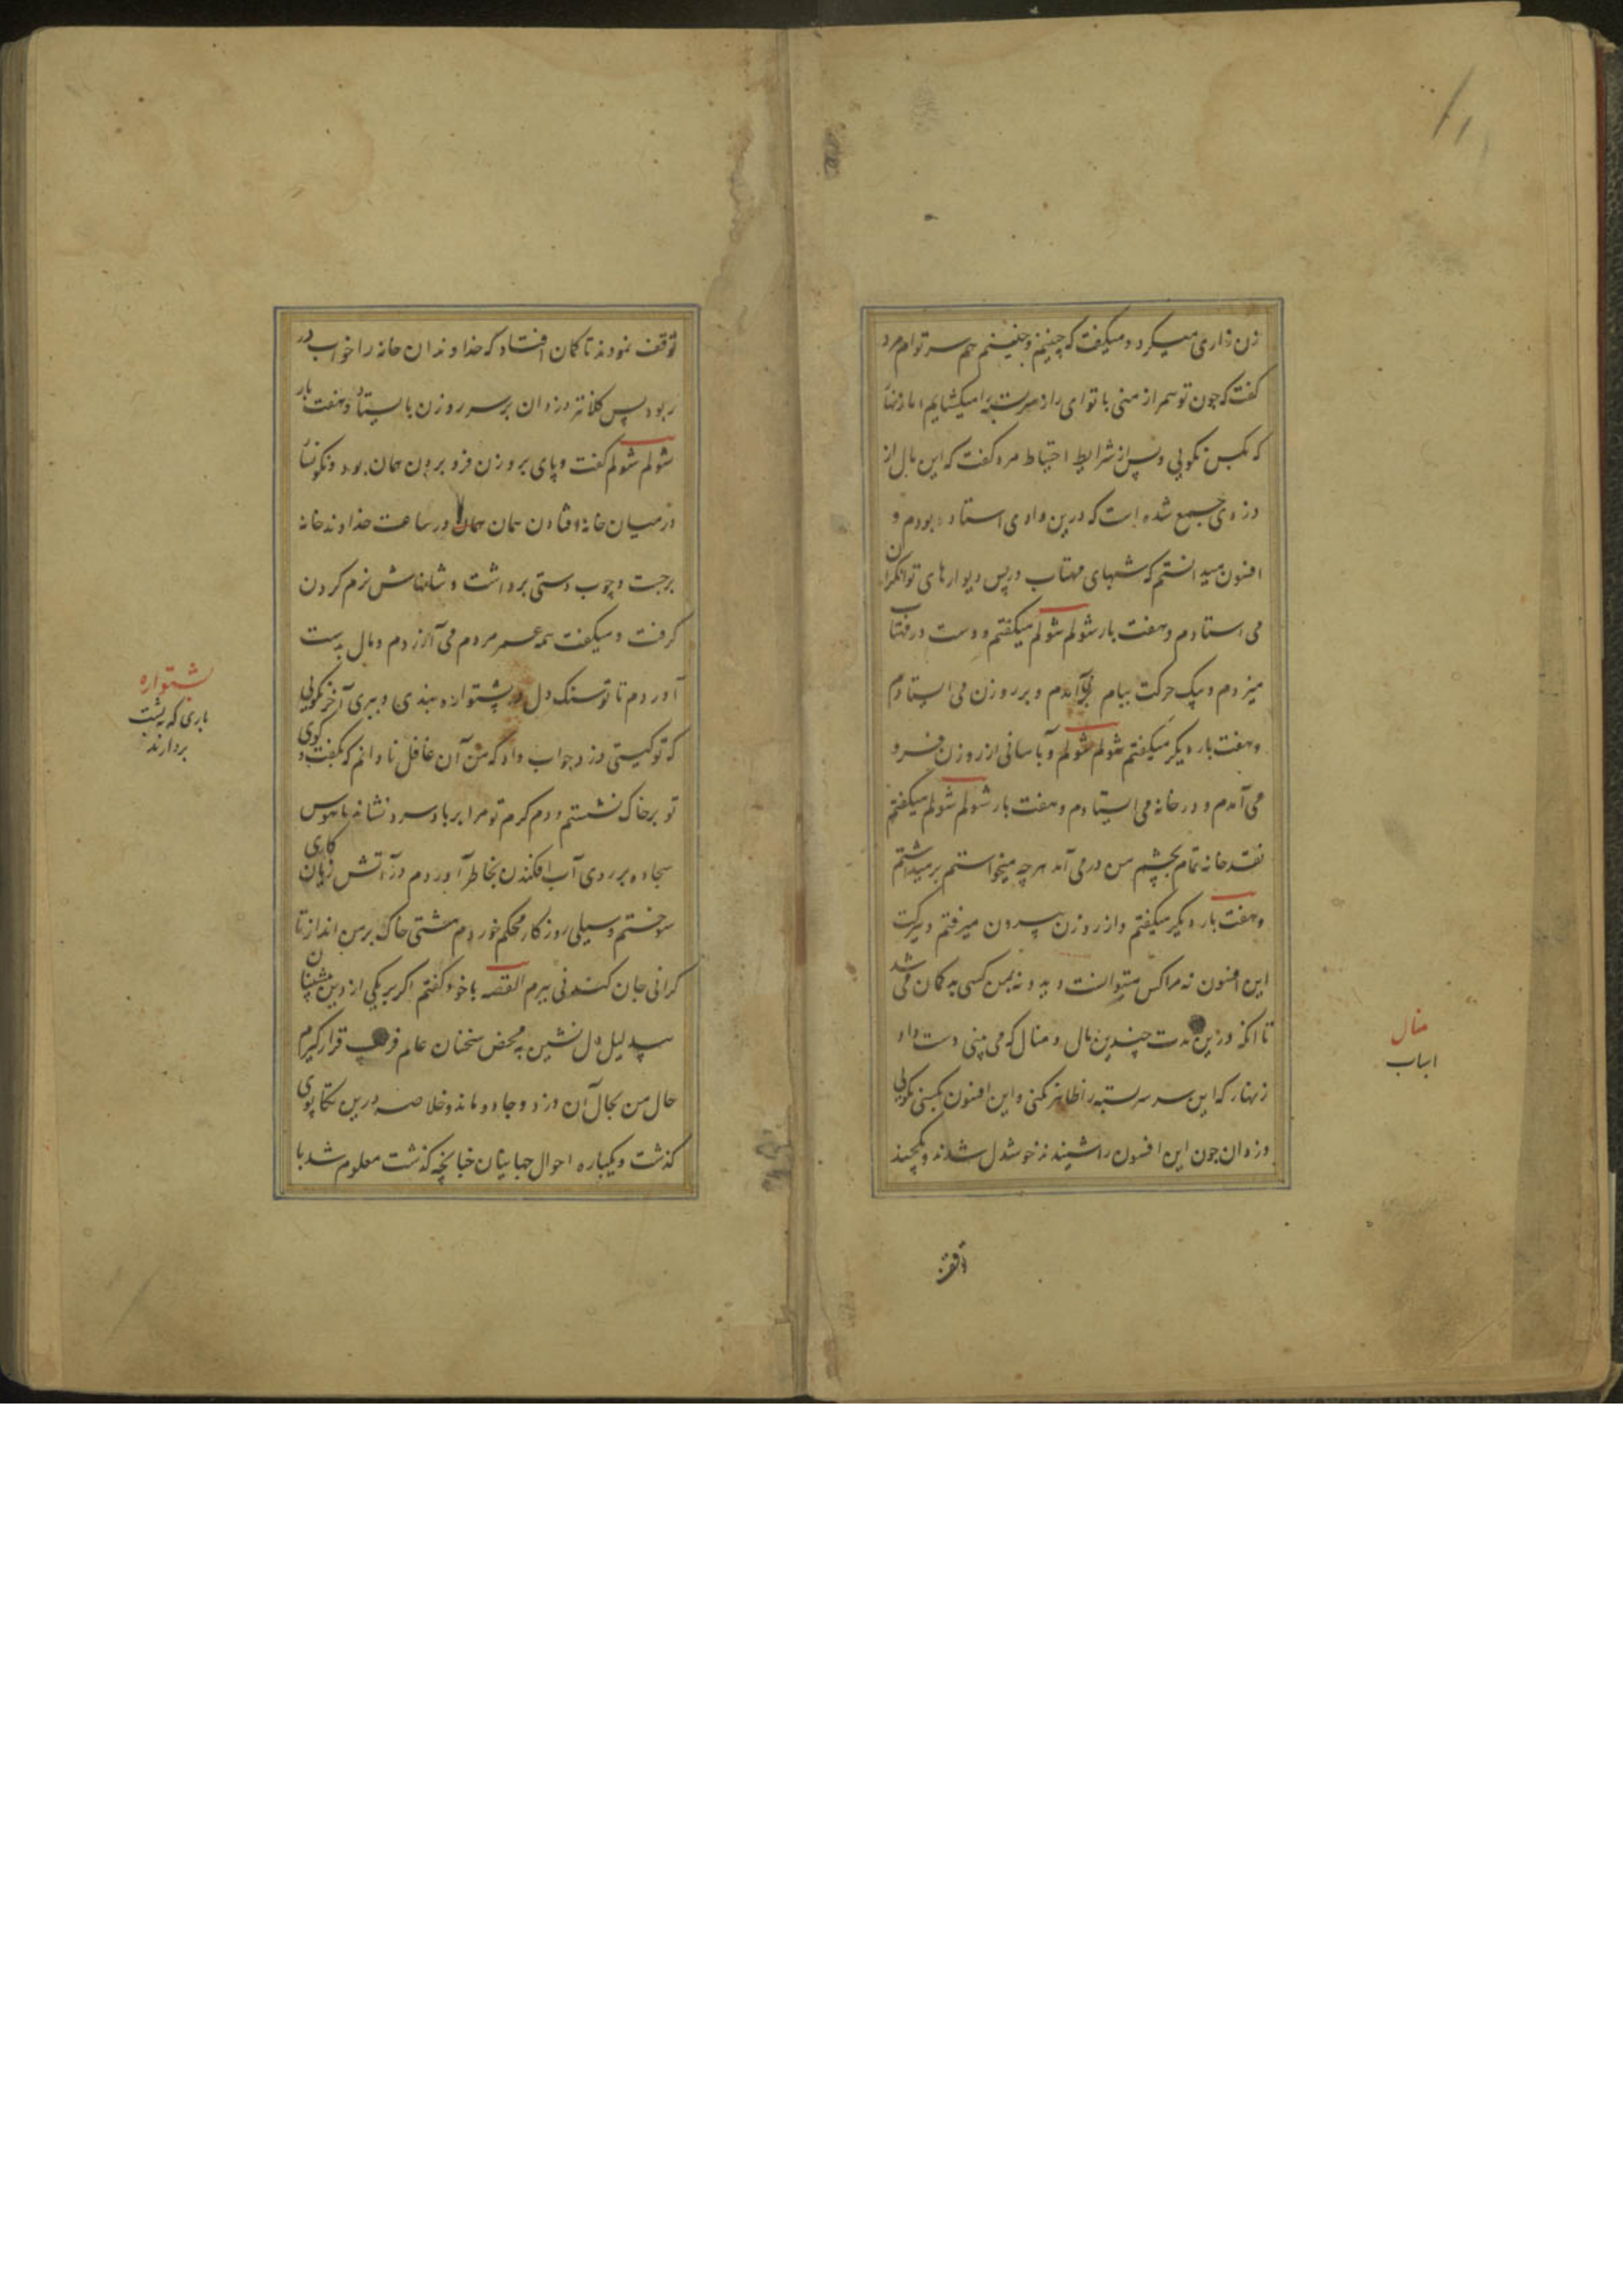 زن زاری میکرد و میکفت که چنینم و چنینم هم سر توام مرد
کفت که چون تو همراز منی با تو ای راز سربسته را میکشایم اما زنهار
که بکس نکویی و پس از شرایط احتیاط مرد کفت که این مال از
دزدی جمع شده است که درین وادی استاد بودم و
افسون میدانستم که شبهای مهتاب در پس دیوارهای توانکران
می استادم و هفت بار شولم شولم میکفتم و دست در مهتاب
میزدم و بیک حرکت ببام برمی آمدم و بر روزن می ایستادم
و هفت بار دیکر میکفتم شولم شولم و بآسانی از روزن فرو
می آمدم و در خانه می ایستادم و هفت بار شولم شولم میکفتم
نقد خانه تمام بچشم من درمی آمد هر چه میخواستم برمیداشتم
و هفت بار دیکر میکفتم و از روزن بیرون میرفتم و ببرکت
این افسون نه مرا کس میتوانست دید و نه بمن کسی بدکمان می شد
تا انکه درین مدت چندین مال و منال که می بینی دست داد
زنهار که این سر سربسته را ظاهر نکنی و این افسون بکسی نکویی
دزدان چون این افسون را شنیدند خوشدل شدند و یکچند
منال
اسباب
توقف نمودند تا کمان افتاد که خداوندان خانه را خواب در
ربود پس کلانتر دزدان بر سر روزن بایستاد و هفت بار
شولم شولم کفت و پای بروزن فرو بردن همان بود و نکونسار
درمیان خانه افتادن همان همان در ساعت خداوند خانه
برجست و چوب دستی برداشت و شانهاش نرم کردن
کرفت و میکفت همه عمر مردم می آزردم و مال بدست
آوردم تا تو سنک دل در پشتواره ببندی و ببری آخر نکویی
که تو کیستی دزد جواب داد که من آن غافل نادانم که بکفت و کوی
تو بر خاک نشستم و دم کرم تو مرا بر باد سرد نشاند تا هوس
سجاده بر روی آب افکندن بخاطر آوردم در آتش زیان کاری
سوختم و سیلی روزکار محکم خوردم مشتی خاک بر من انداز تا
کرانی جان کندنی ببرم القصه با خود کفتم اکر بر یکی از دین مشتبنان
بیدلیل دل نشین بمحض سخنان عالم فریب قرار کیرم
حال من بحال آن دزد و جادو ماند و خلاصه درین تکاپوی
کذشت و یکباره احوال جهانیان چنانچه کذشت معلوم شد با
پشتواره
باری که بپشت
بردارند
توقف